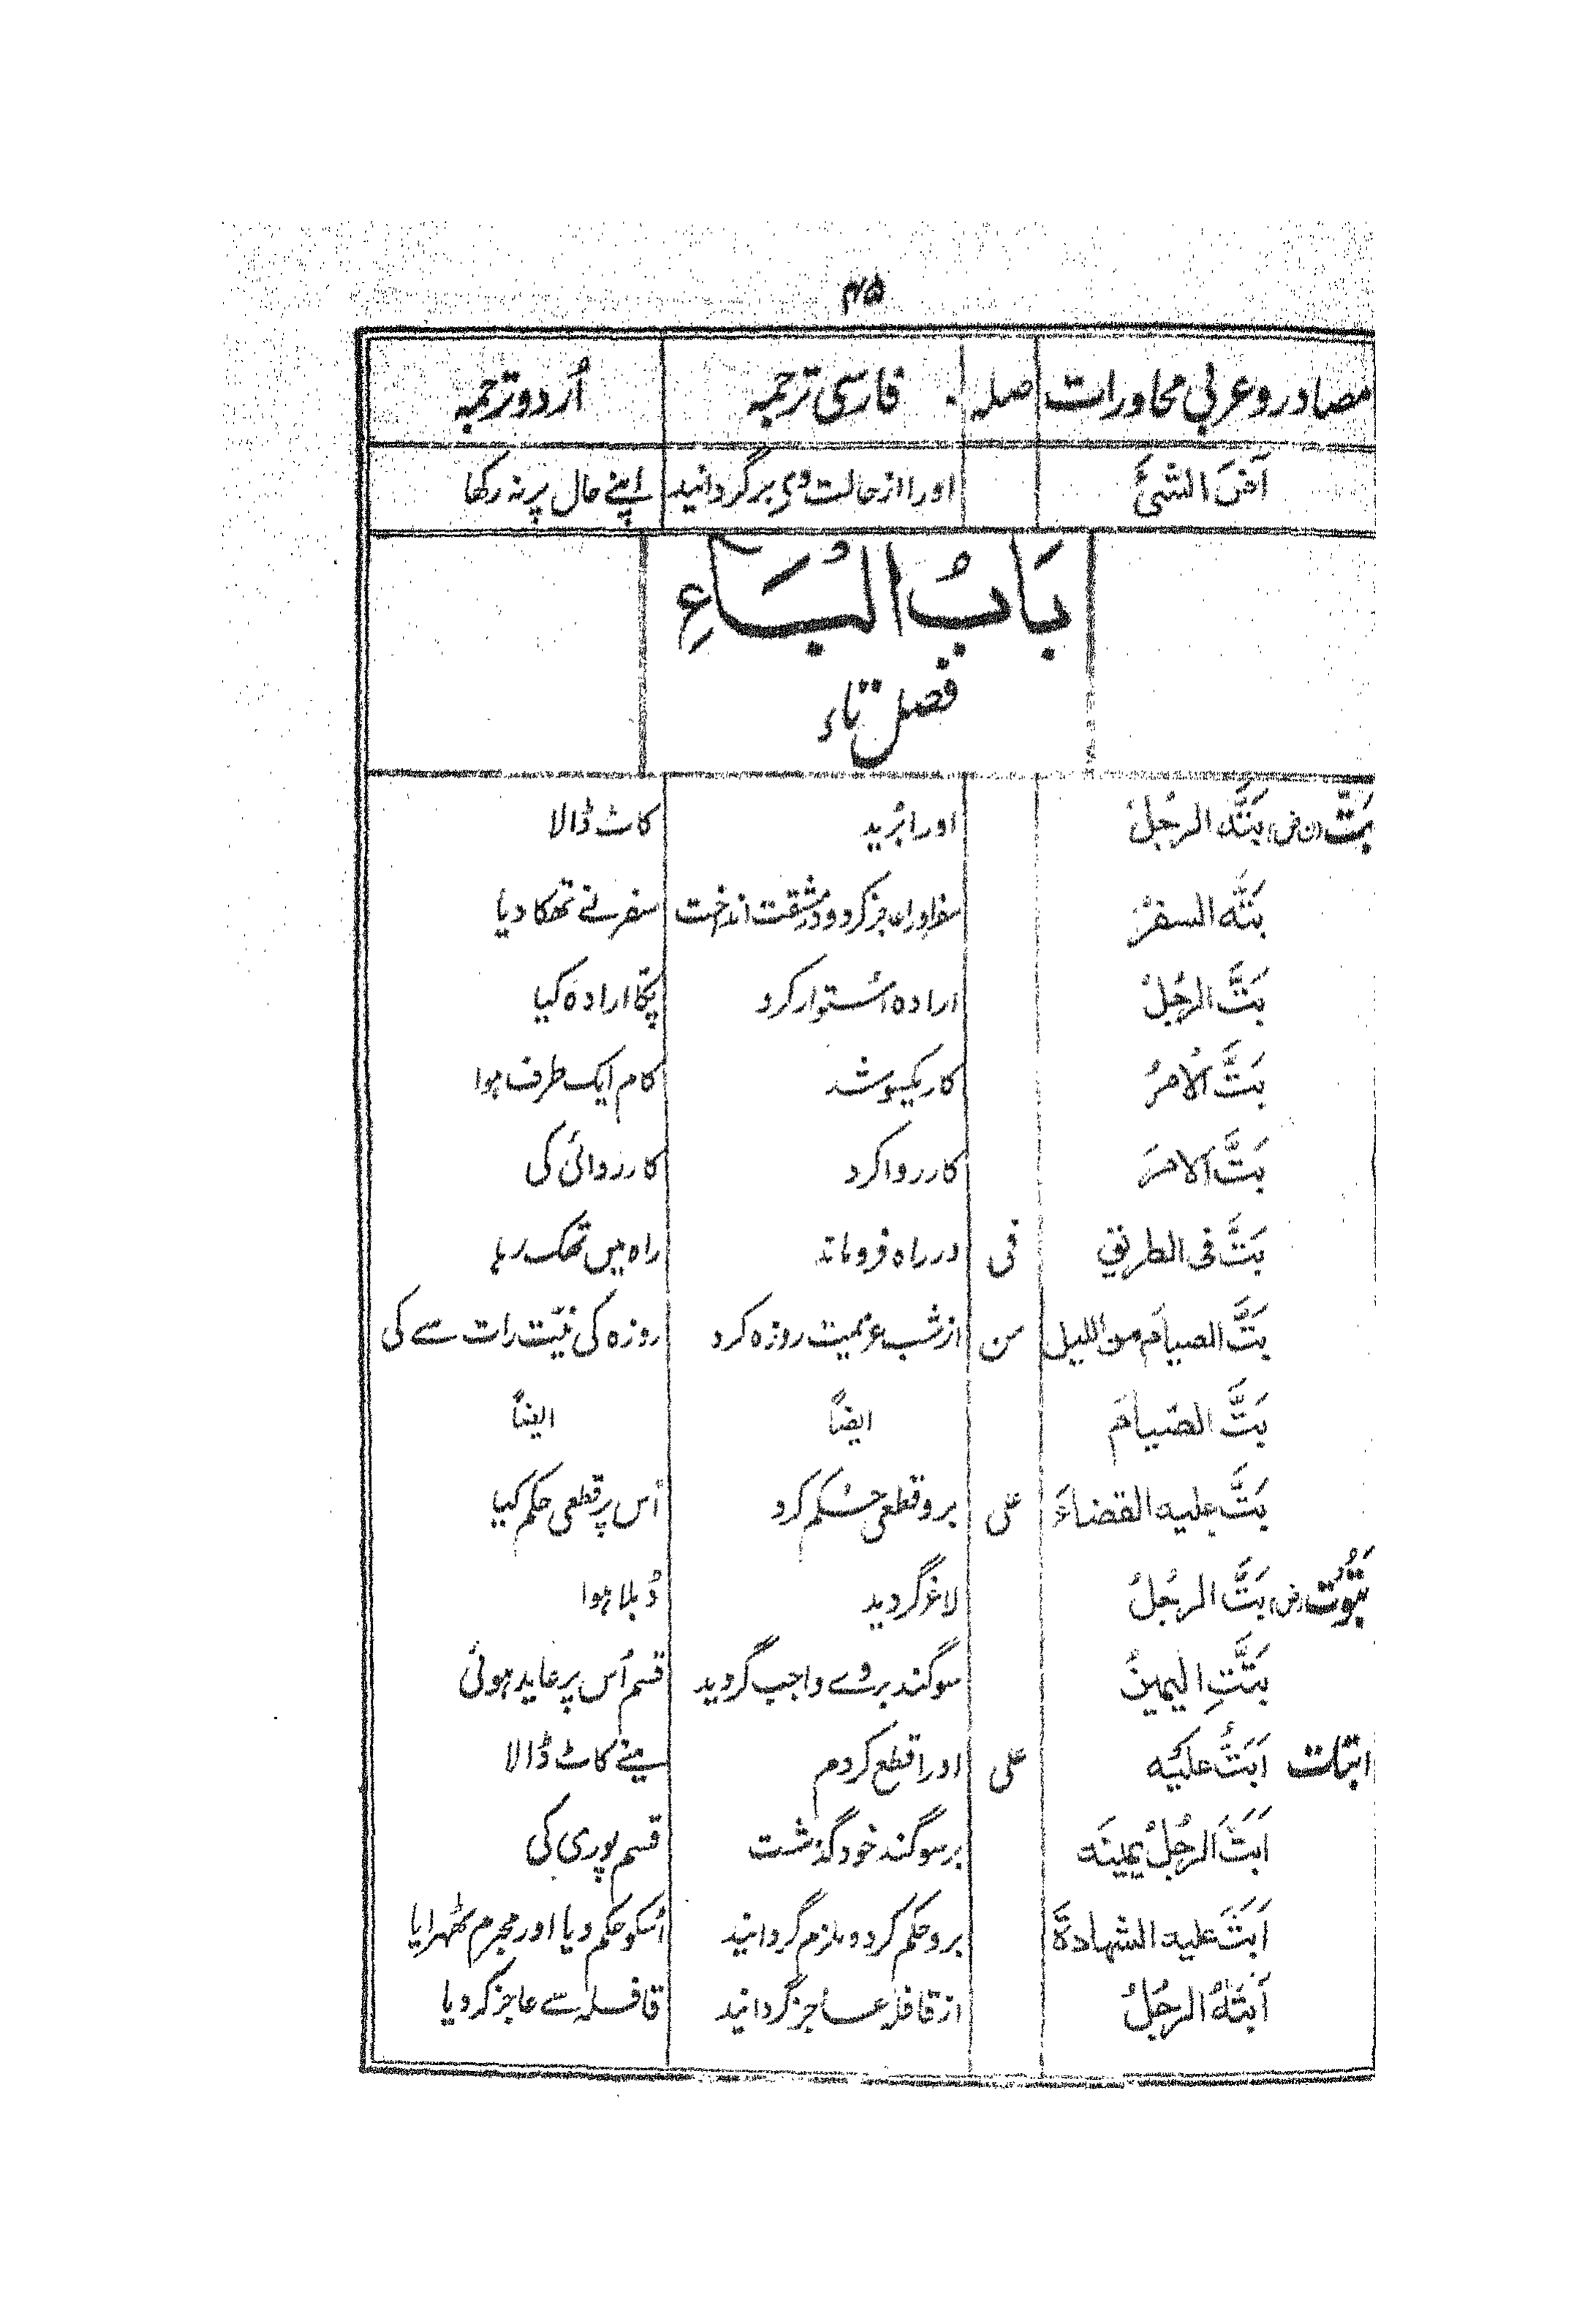 ۴۵
مصادر و عربی محاورات صلہ فارسی ترجمہ اُردو ترجمہ
آضَ الشیَٔ اورا از حالت وی برگردانید اپنے حال پر نہ رکھا
بَابُ الْبَاءِ
فصل تاء
بَتّ (ن ض) بَتَّہ الرجُلُ اورا بُرید کاٹ ڈالا
بَتَّہ السفرُ سفر اورا عاجز کرد و در مشقت انداخت سفر نے تھکا دیا
بَتَّ الرجُلُ ارادہ اُستوار کرد پکّا ارادہ کیا
بَتَّ الاَمرُ کار یکسو شد کام ایک طرف ہوا
بَتَّ الامرَ کار روا کرد کارروائی کی
بَتَّ فی الطریق فی در راہ فروماند راہ میں تھک رہا
بَتَّ الصیامَ من اللیل من از شب عزیمت روزہ کرد روزہ کی نیّت رات سے کی
بَتَّ الصّیامَ ایضاً ایضاً
بَتَّ علیہ القضاءَ علی برو قطعی حکم کرد اُس پر قطعی حکم کیا
بُتُوت (ض) بَتَّ الرجُلُ لاغر گردید دُبلا ہوا
بَتَّتِ الیمینُ سوگند بروے واجب گردید قسم اُس پر عاید ہوئی
ابتات اَبَتُّ علیَہ علی اورا قطع کردم مینے کاٹ ڈالا
اَبَتَّ الرجُلُ یمینَہ بر سوگند خود گذشت قسم پوری کی
اَبَتَّ علیہ الشہادۃَ برو حکم کرد و ملزم گردانید اُسکو حکم دیا اور مجرم ٹھہرایا
اَبَتَّہُ الرجُلُ از قافلہ عاجز گردانید قافلہ سے عاجز کر دیا